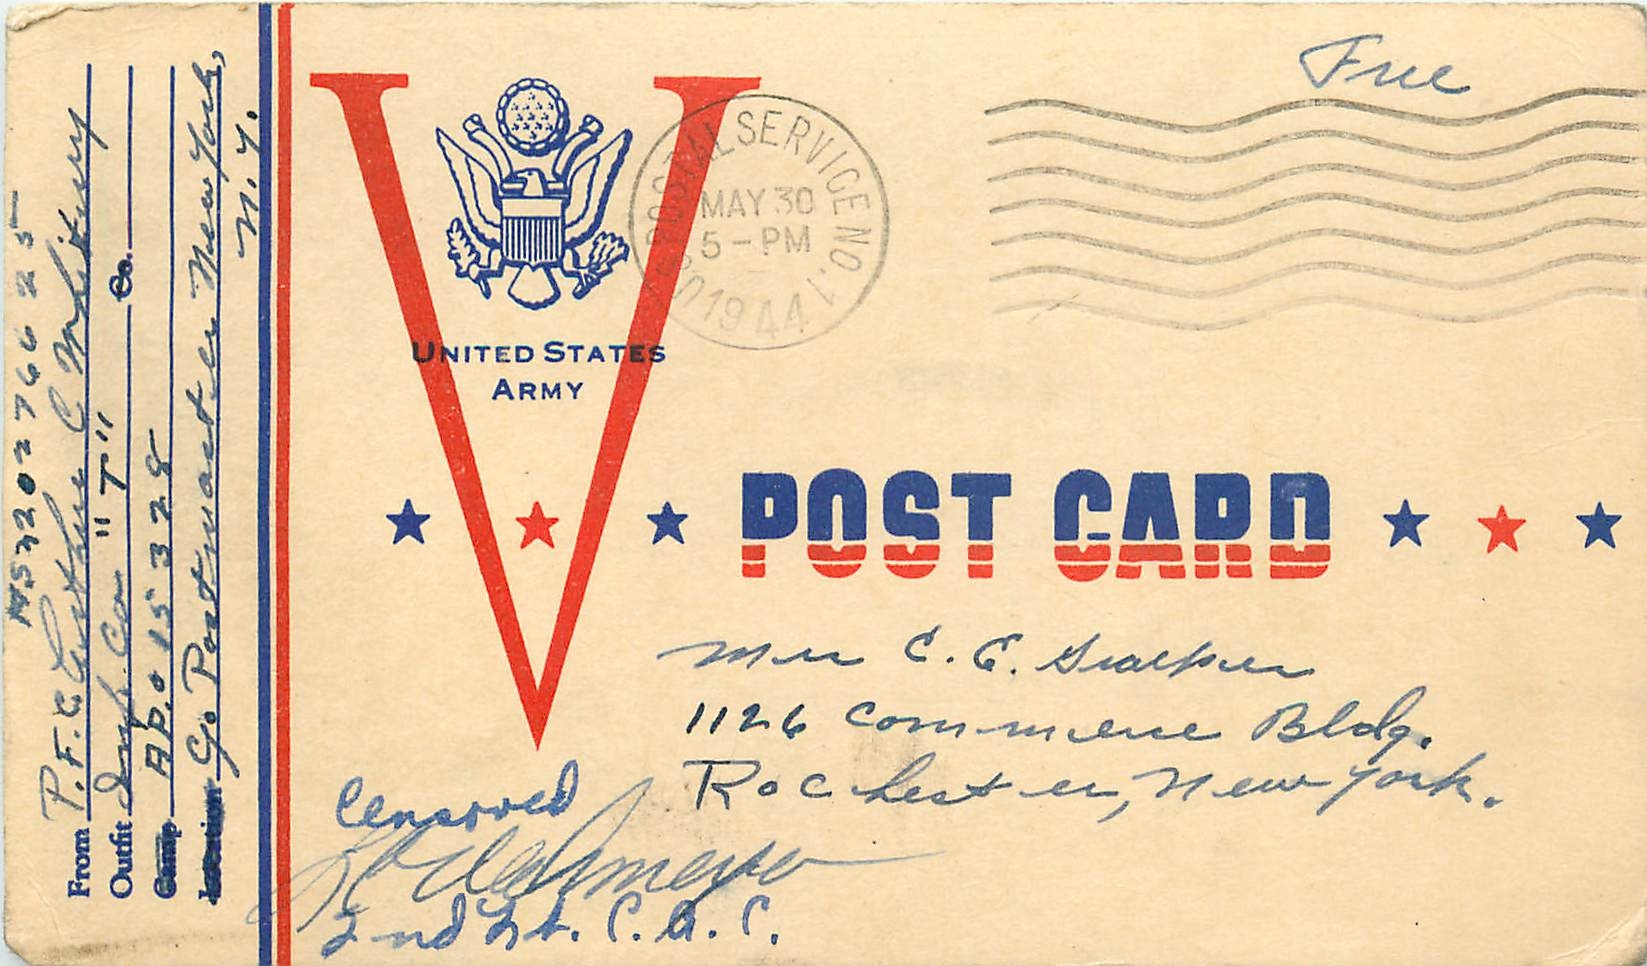 NS32027 66 25
From P.F.C. Arthur C Whiteley
Outfit Inf. Co. "T" Co.
Camp A.P.O 15328
Location ℅ Postmaster New York,
N.Y.
Free
U.S. POSTAL SERVICE NO. 1
MAY 30
5 - PM
1944
UNITED STATES
ARMY
POST CARD
C. E.
1126 Commerce Bldg.
Rochester, New York.
Censored
2nd Lt. C.A.C.